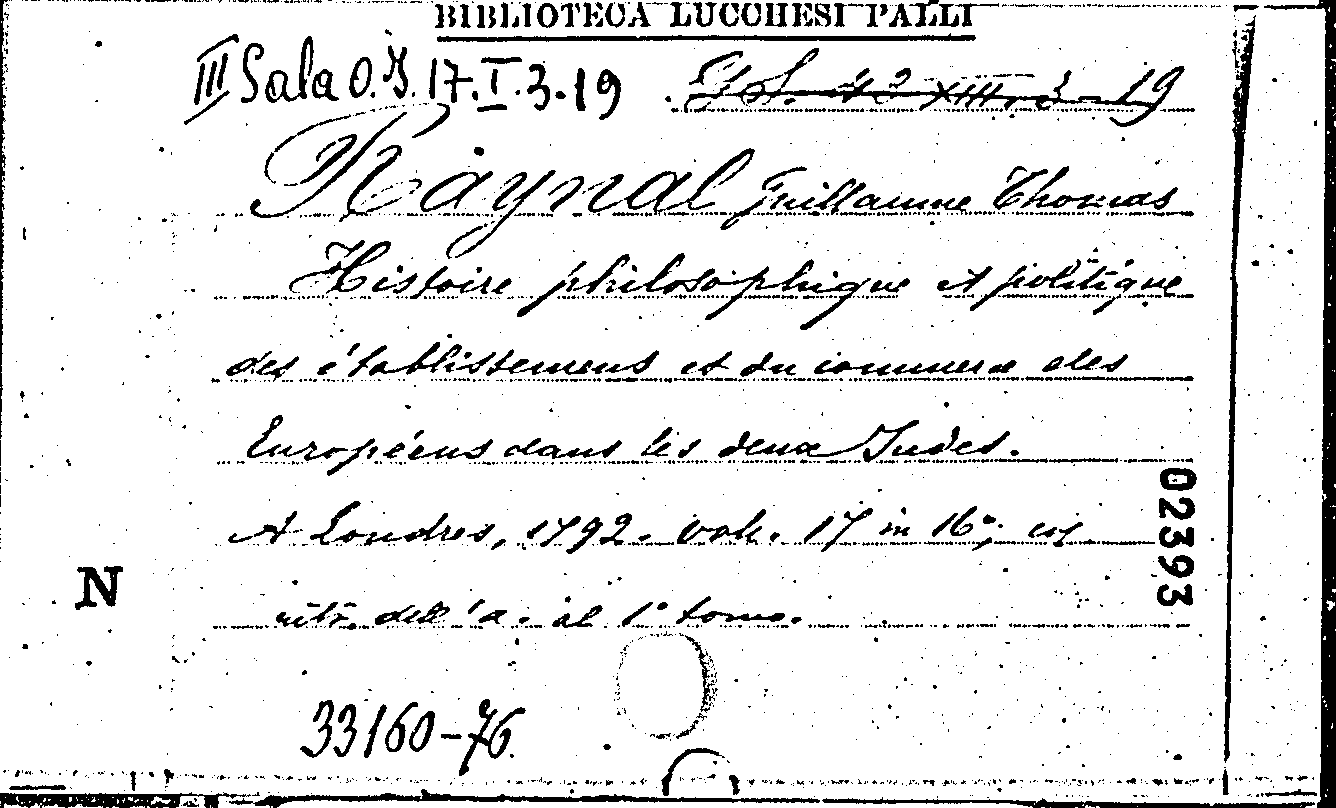 BIBLIOTECA LUCCHESI PALLI
III Sala O.I. 17. I. 3-19
Raynal Guillaume Thomas
Histoire philosophique et politique
des établissemens et du commerce des
Européens dans les deux Indes.
A Londres, 1792. voll. 17 in 16°; col
ritr. dell'a. al 1° tomo.
02393
N
33160-76